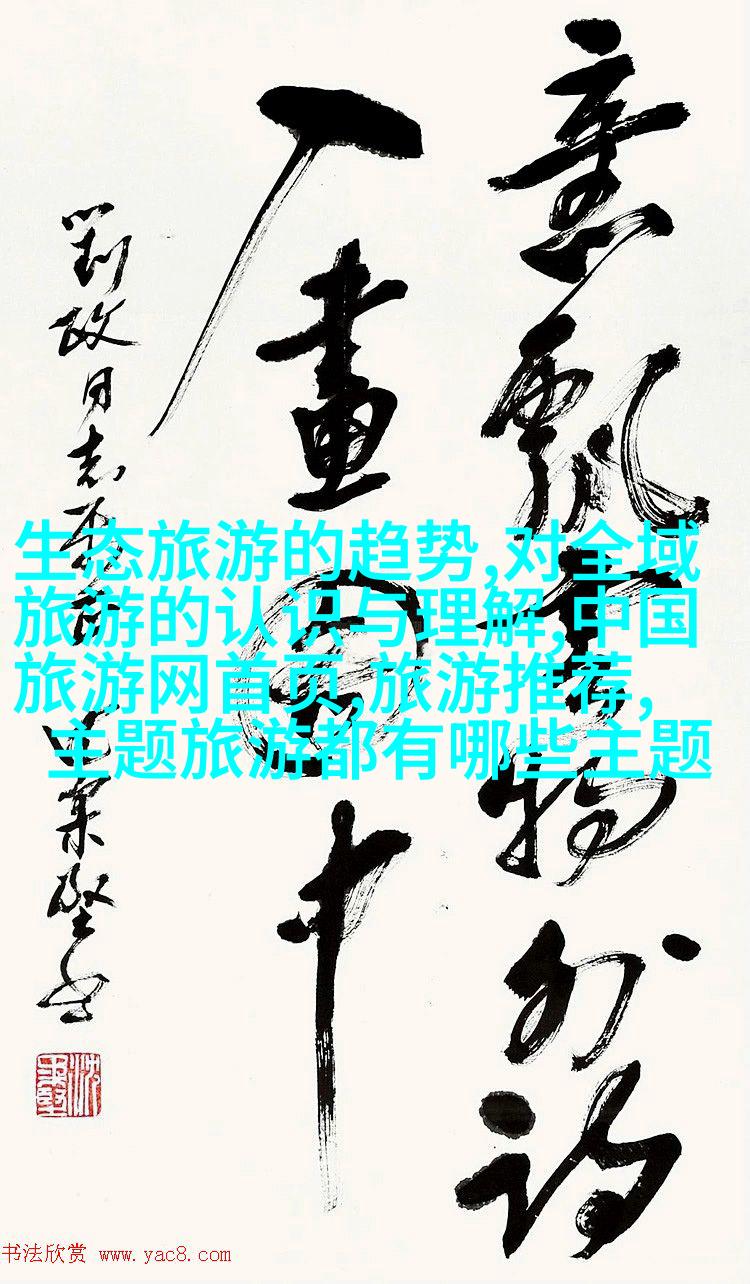 意飄云物外詩
入畫圖中
劉政同志
生态旅游的趋势,对全域
旅游的认识与理解,中国
旅游网首页,旅游推荐,
主题旅游都有哪些主题
书法欣赏 www.yac8.com